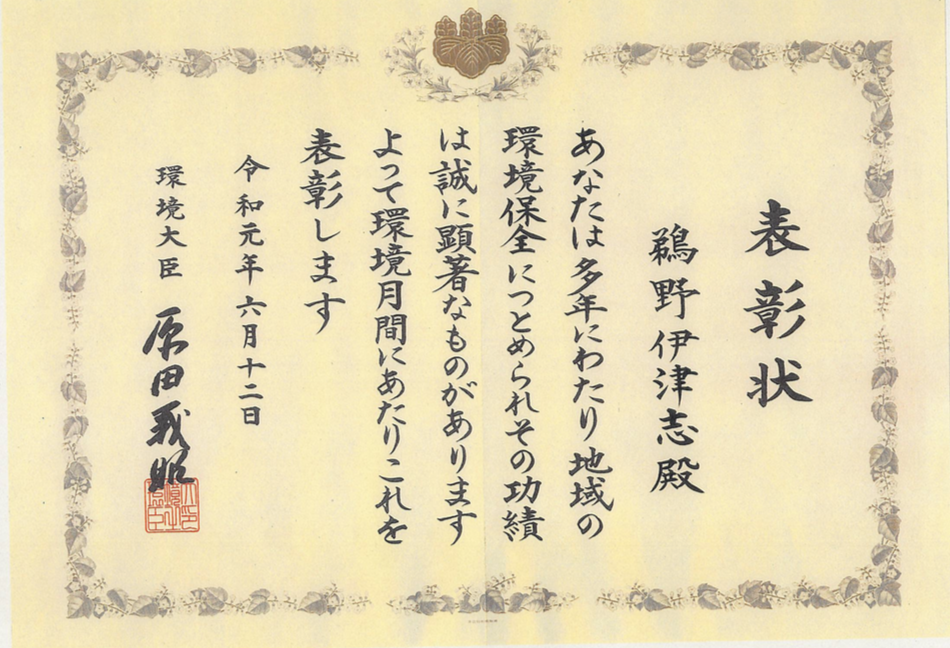 表彰状
鵜野伊津志殿
あなたは多年にわたり地域の
環境保全につとめられその功績
は誠に顕著なものがあります
よって環境月間にあたりこれを
表彰します
令和元年六月十二日
環境大臣 原田義昭